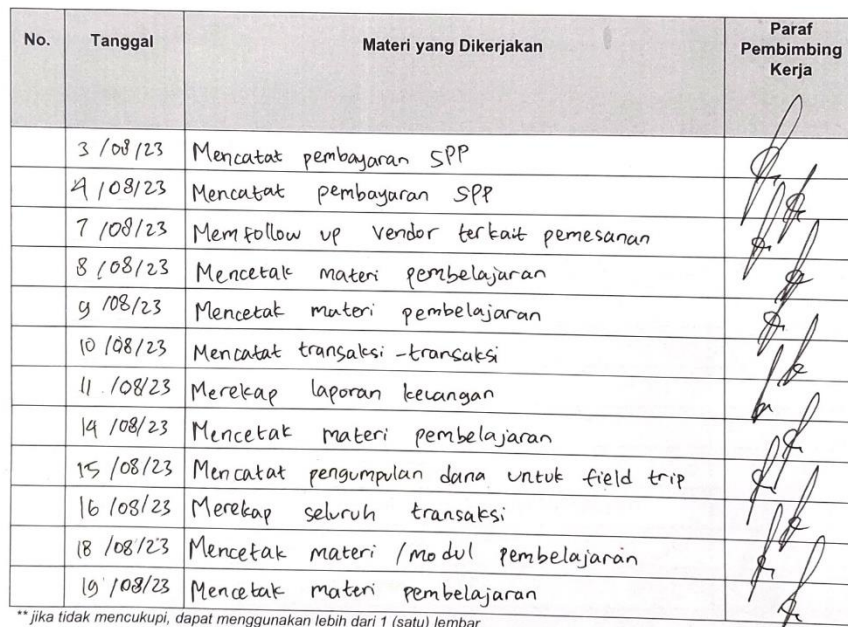 No. Tanggal Materi yang Dikerjakan Paraf Pembimbing Kerja
3/08/23 Mencatat pembayaran SPP
4/08/23 Mencatat pembayaran SPP
7/08/23 Memfollow up vendor terkait pemesanan
8/08/23 Mencetak materi pembelajaran
9/08/23 Mencetak materi pembelajaran
10/08/23 Mencatat transaksi-transaksi
11/08/23 Merekap laporan keuangan
14/08/23 Mencetak materi pembelajaran
15/08/23 Mencatat pengumpulan dana untuk field trip
16/08/23 Merekap seluruh transaksi
18/08/23 Mencetak materi/modul pembelajaran
19/08/23 Mencetak materi pembelajaran
** jika tidak mencukupi, dapat menggunakan lebih dari 1 (satu) lembar